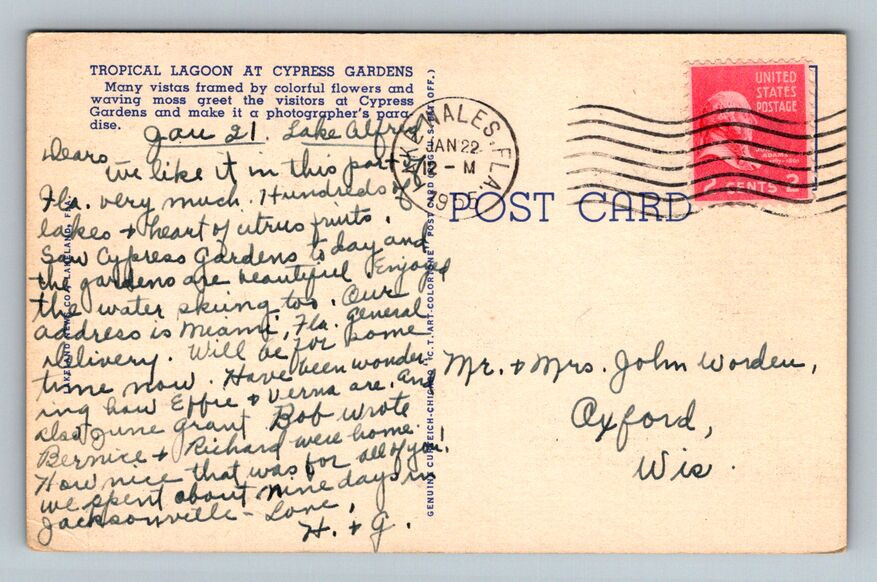 TROPICAL LAGOON AT CYPRESS GARDENS
Many vistas framed by colorful flowers and
waving moss greet the visitors at Cypress
Gardens and make it a photographer's para
dise.
Jan 21. Lake Alfred
Dears
we like it in this part of
Fla. very much. Hundreds of
lakes + heart of citrus fruits.
Saw Cypress Gardens today and
the gardens are beautiful. Enjoyed
the water skiing too. Our
address is Miami, Fla. General
delivery. Will be for some
time now. Have been wonder-
ing how Effie + Verna are. And
also June Grant Bob wrote
Bernice + Richard were home.
How nice that was for all of you!
we spent about nine days in
Jacksonville - Love,
H. + G.
LAKELAND NEWS CO., LAKELAND, FLA.
GENUINE CURTEICH-CHICAGO "C.T. ART-COLORTONE" POST CARD (REG. U. S. PAT. OFF.)
LAKE WALES, FLA.
JAN 22
12 - M
1955
UNITED
STATES
POSTAGE
JOHN
ADAMS
2 CENTS 2
POST CARD
Mr. + Mrs. John Worden,
Oxford,
Wis.